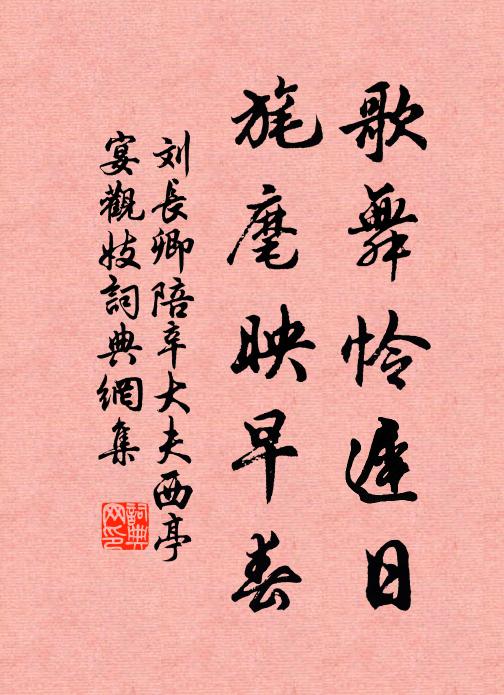 歌舞怜遲日
旄麾映早春
刘長卿陪辛大夫西亭
宴觀妓詞典網集
詞典
网印